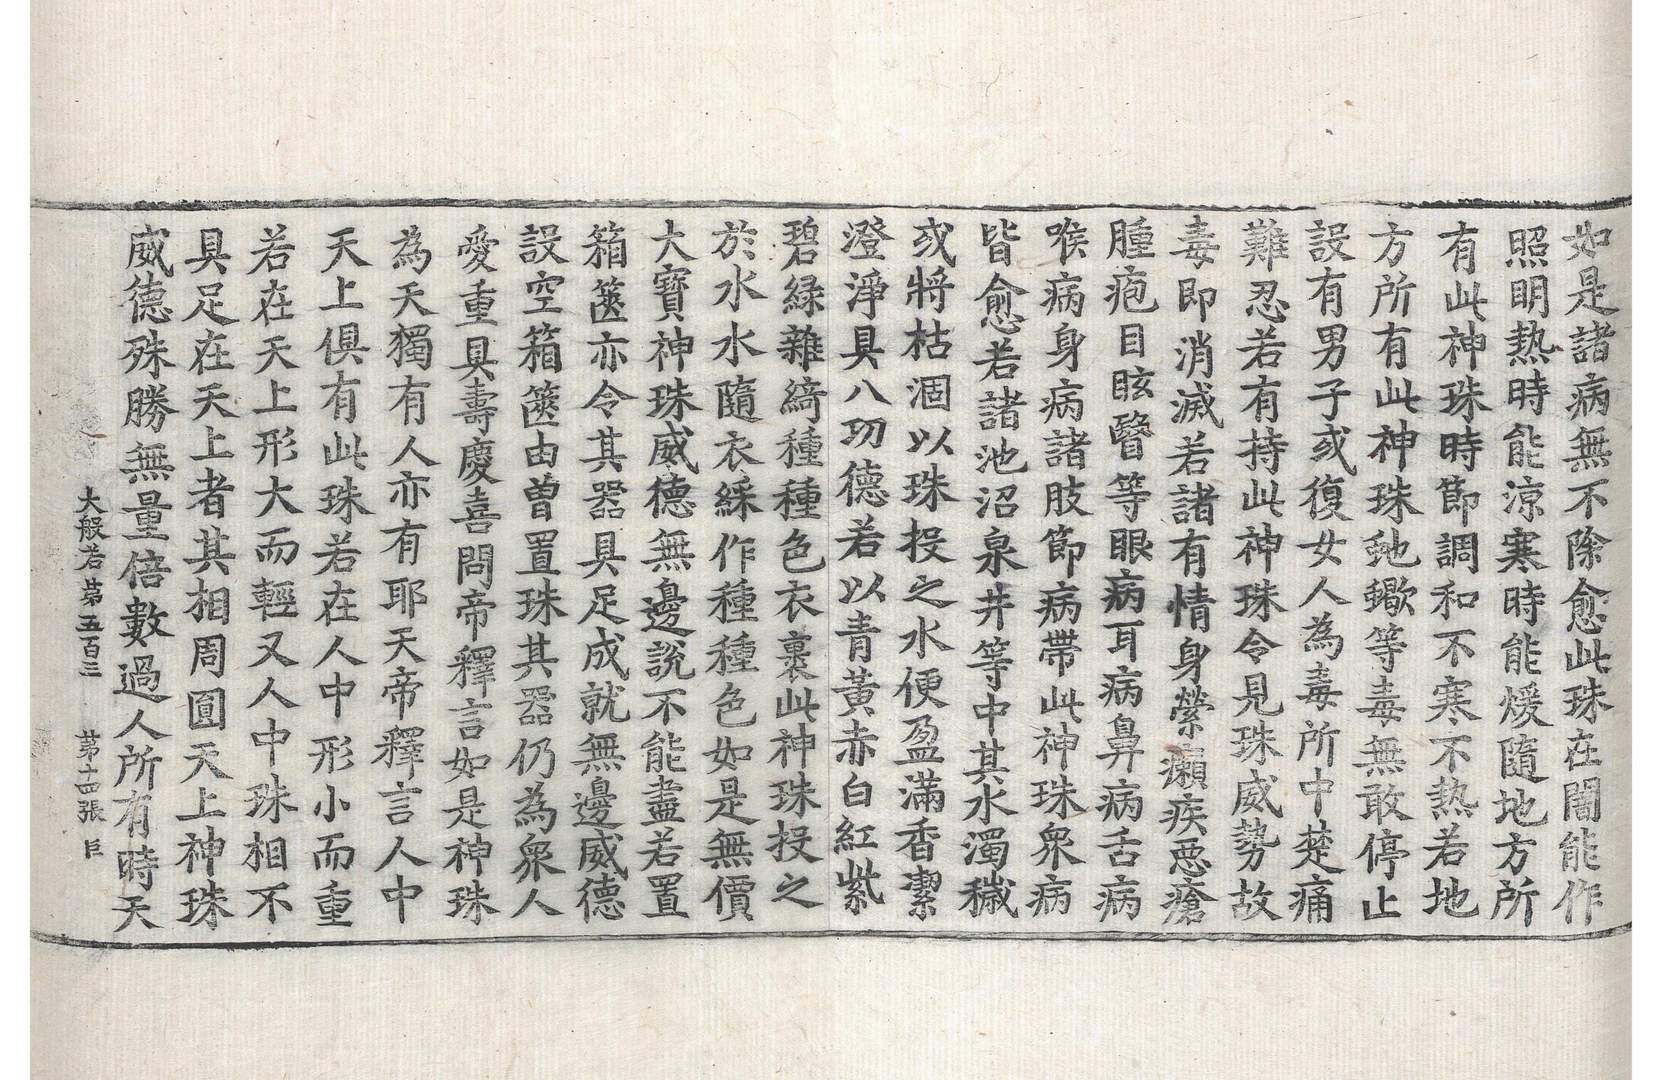 如是諸病無不除愈此珠在闇能作
照明熱時能涼寒時能煖隨地方所
有此神珠時節調和不寒不熱若地
方所有此神珠虵蠍等毒無敢停止
設有男子或復女人為毒所中楚痛
難忍若有持此神珠令見珠威勢故
毒即消滅若諸有情身嬰癩疾惡瘡
腫疱目眩瞖等眼病耳病鼻病舌病
喉病身病諸肢節病帶此神珠衆病
皆愈若諸池沼泉井等中其水濁穢
或將枯涸以珠投之水便盈滿香潔
澄淨具八功德若以青黃赤白紅紫
碧綠雜綺種種色衣裹此神珠投之
於水水隨衣綵作種種色如是無價
大寶神珠威德無邊說不能盡若置
箱篋亦令其器具足成就無邊威德
設空箱篋由曾置珠其器仍為衆人
愛重具壽慶喜問帝釋言如是神珠
為天獨有人亦有耶天帝釋言人中
天上俱有此珠若在人中形小而重
若在天上形大而輕又人中珠相不
具足在天上者其相周圓天上神珠
威德殊勝無量倍數過人所有時天
大般若第五百三 第十四張 臣